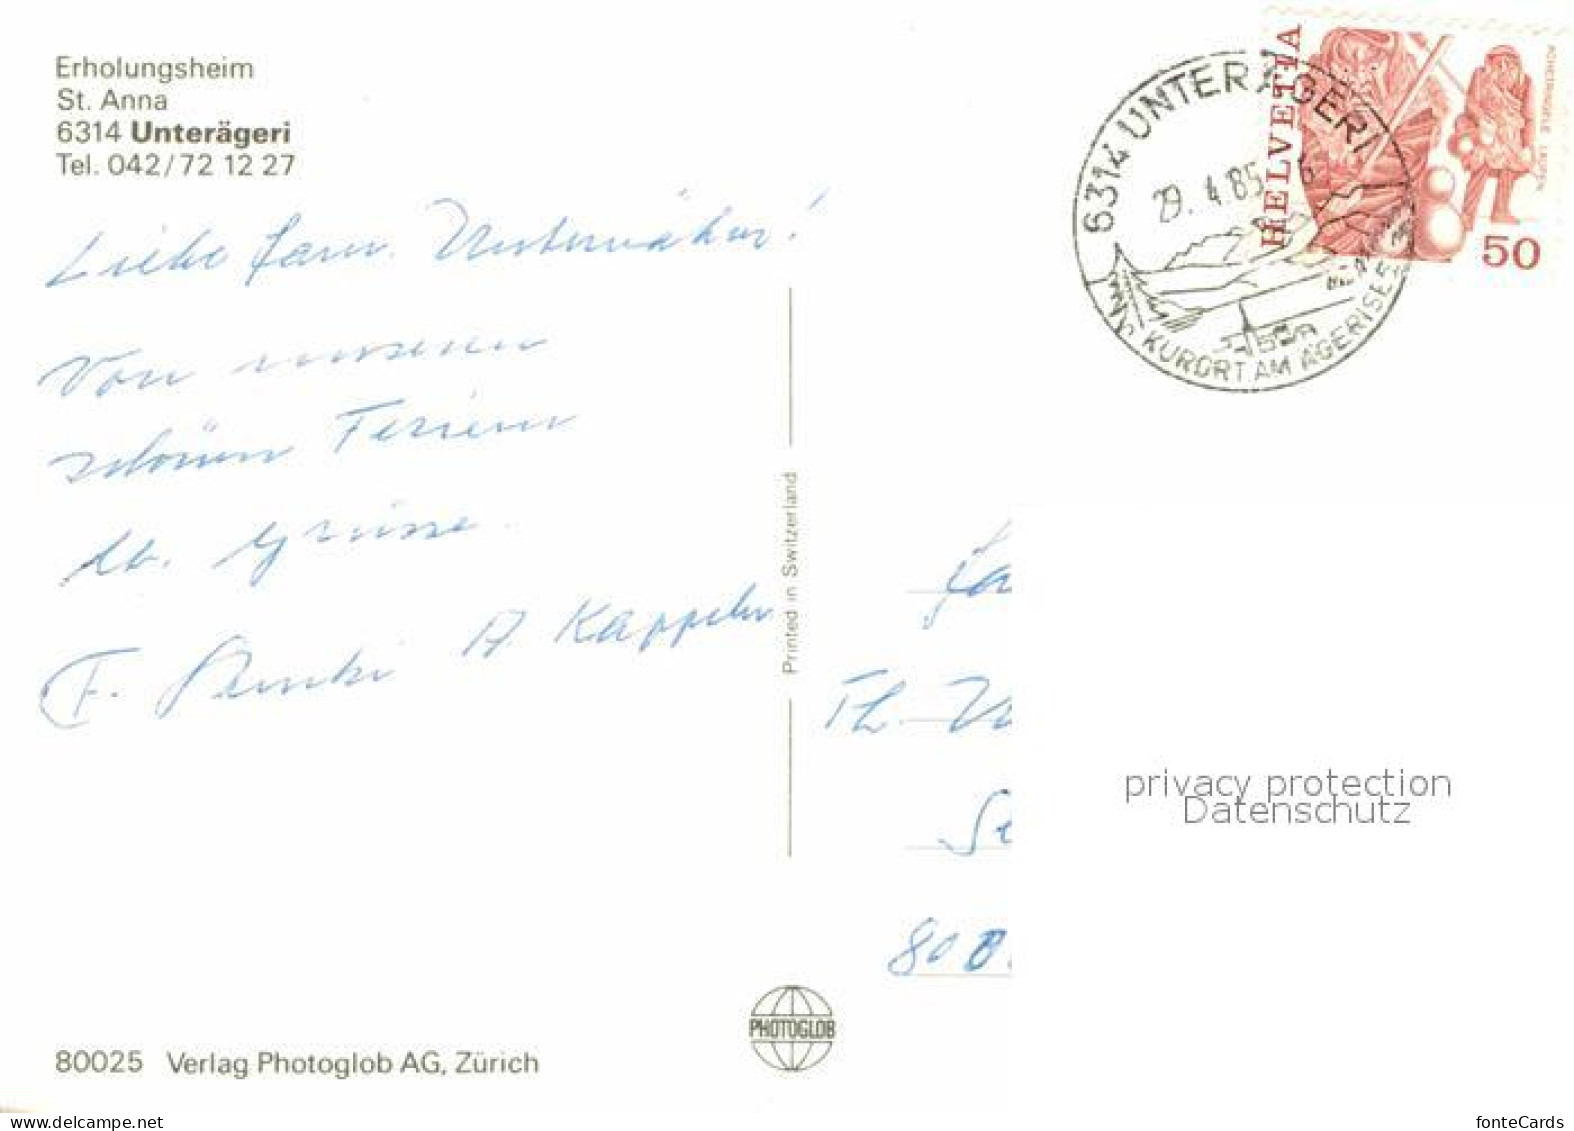 Erholungsheim
St. Anna
6314 Unterägeri
Tel. 042/72 12 27
Liebe Fam. Unternährer!
Von unseren
schönen Ferien
lb. Grüsse
F. A. Kappeler
HELVETIA
50
6314 UNTERÄGERI
29.4.85
KURORT AM ÄGERISEE
Printed in Switzerland
Fa
Th.
808
privacy protection
Datenschutz
PHOTOGLOB
80025 Verlag Photoglob AG, Zürich
www.delcampe.net
fonteCards